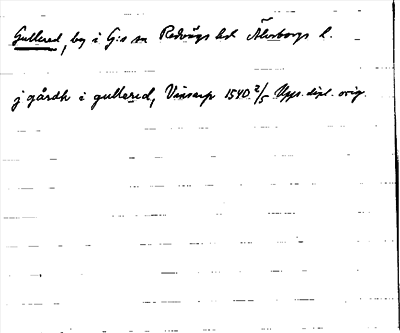 Gullered, by i G:s sn Redvägs hd Älvsborgs l.
j gårdh i gullered, Vinsarp 1540 2/5 Upps. dipl. orig.